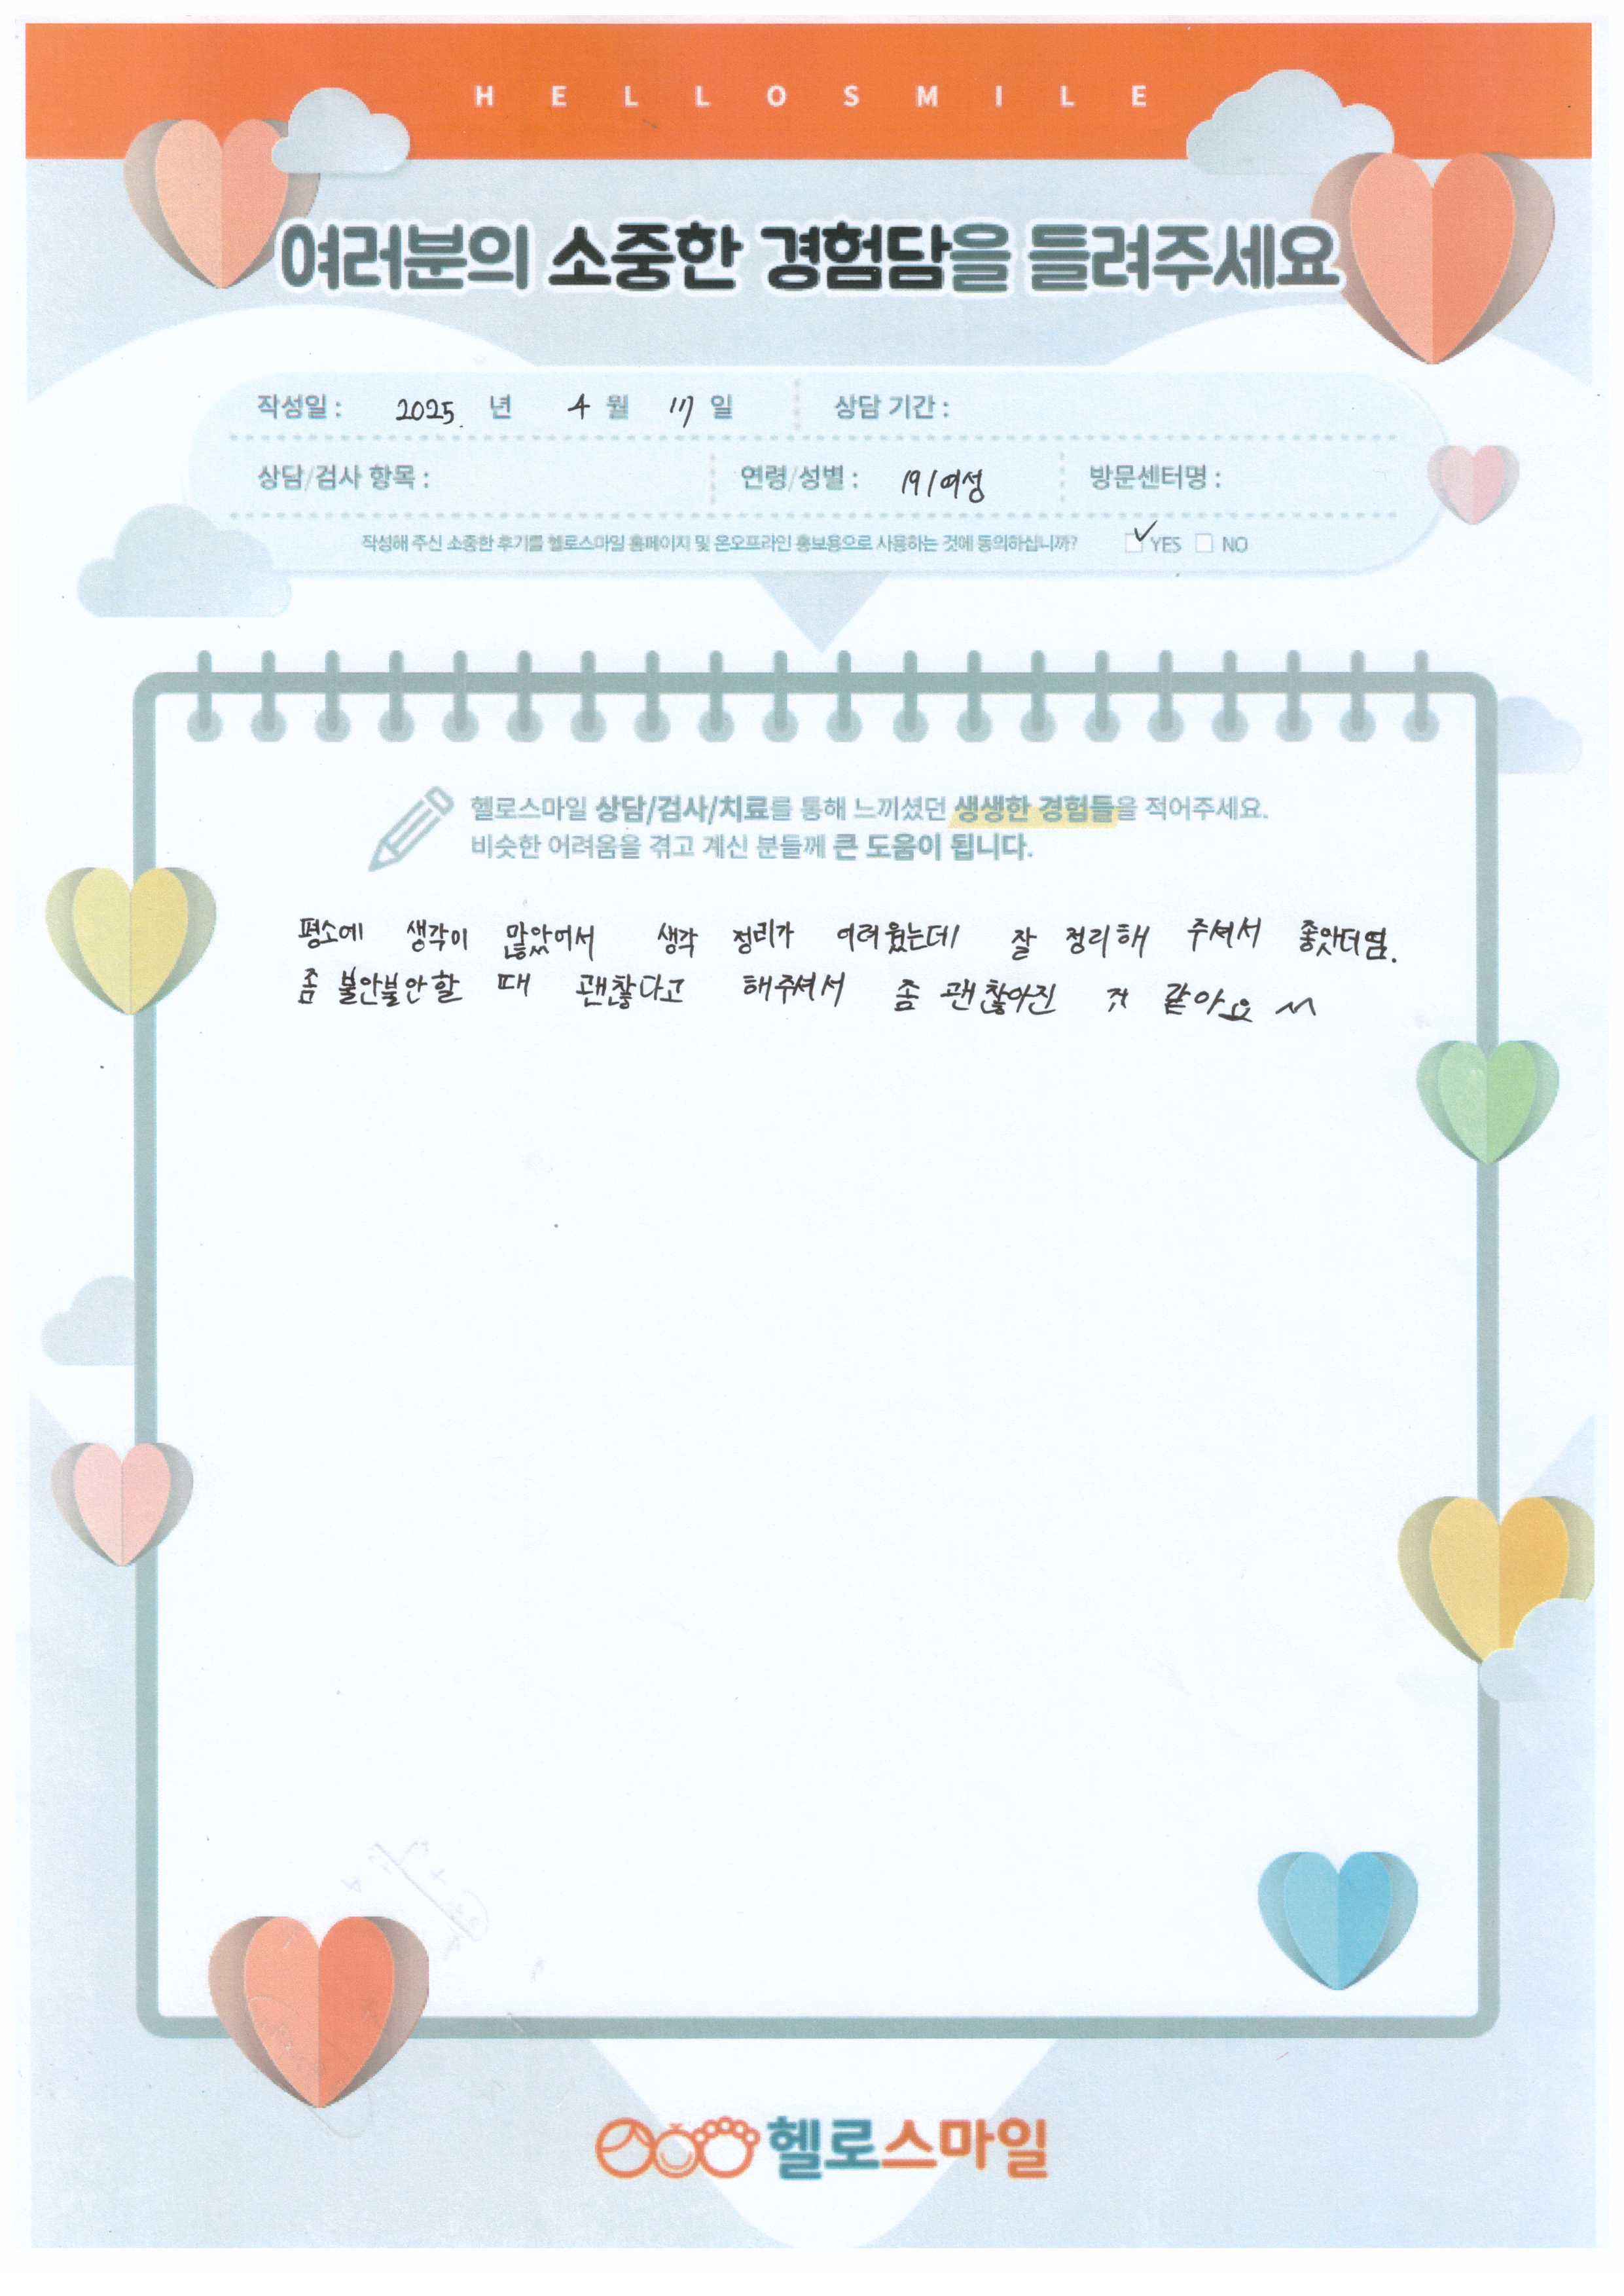 HELLOSMILE
여러분의 소중한 경험담을 들려주세요
작성일 : 2025. 년 4 월 17 일 상담 기간 :
상담/검사 항목 : 연령/성별 : 19/여성 방문센터명 :
작성해 주신 소중한 후기를 헬로스마일 홈페이지 및 온오프라인 홍보용으로 사용하는 것에 동의하십니까? YES NO
헬로스마일 상담/검사/치료를 통해 느끼셨던 생생한 경험들을 적어주세요.
비슷한 어려움을 겪고 계신 분들께 큰 도움이 됩니다.
평소에 생각이 많았어서 생각 정리가 어려웠는데 잘 정리해 주셔서 좋앗더염.
좀 불안불안할 때 괜찮다고 해주셔서 좀 괜찮아진 것 같아요 ^^
헬로스마일